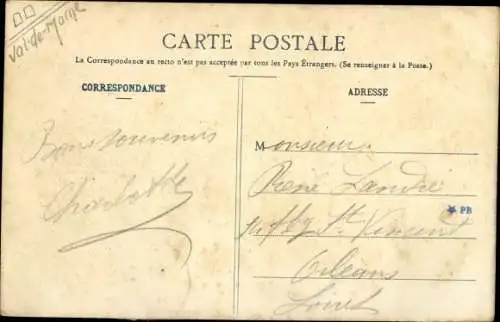 Val-de-Marne
CARTE POSTALE
La Correspondance au recto n'est pas acceptée par tous les Pays Étrangers. (Se renseigner à la Poste.)
CORRESPONDANCE
ADRESSE
Bons souvenirs
Charlotte
Monsieur
René Landré
fbg St Vincent
Orléans
Loiret
PB